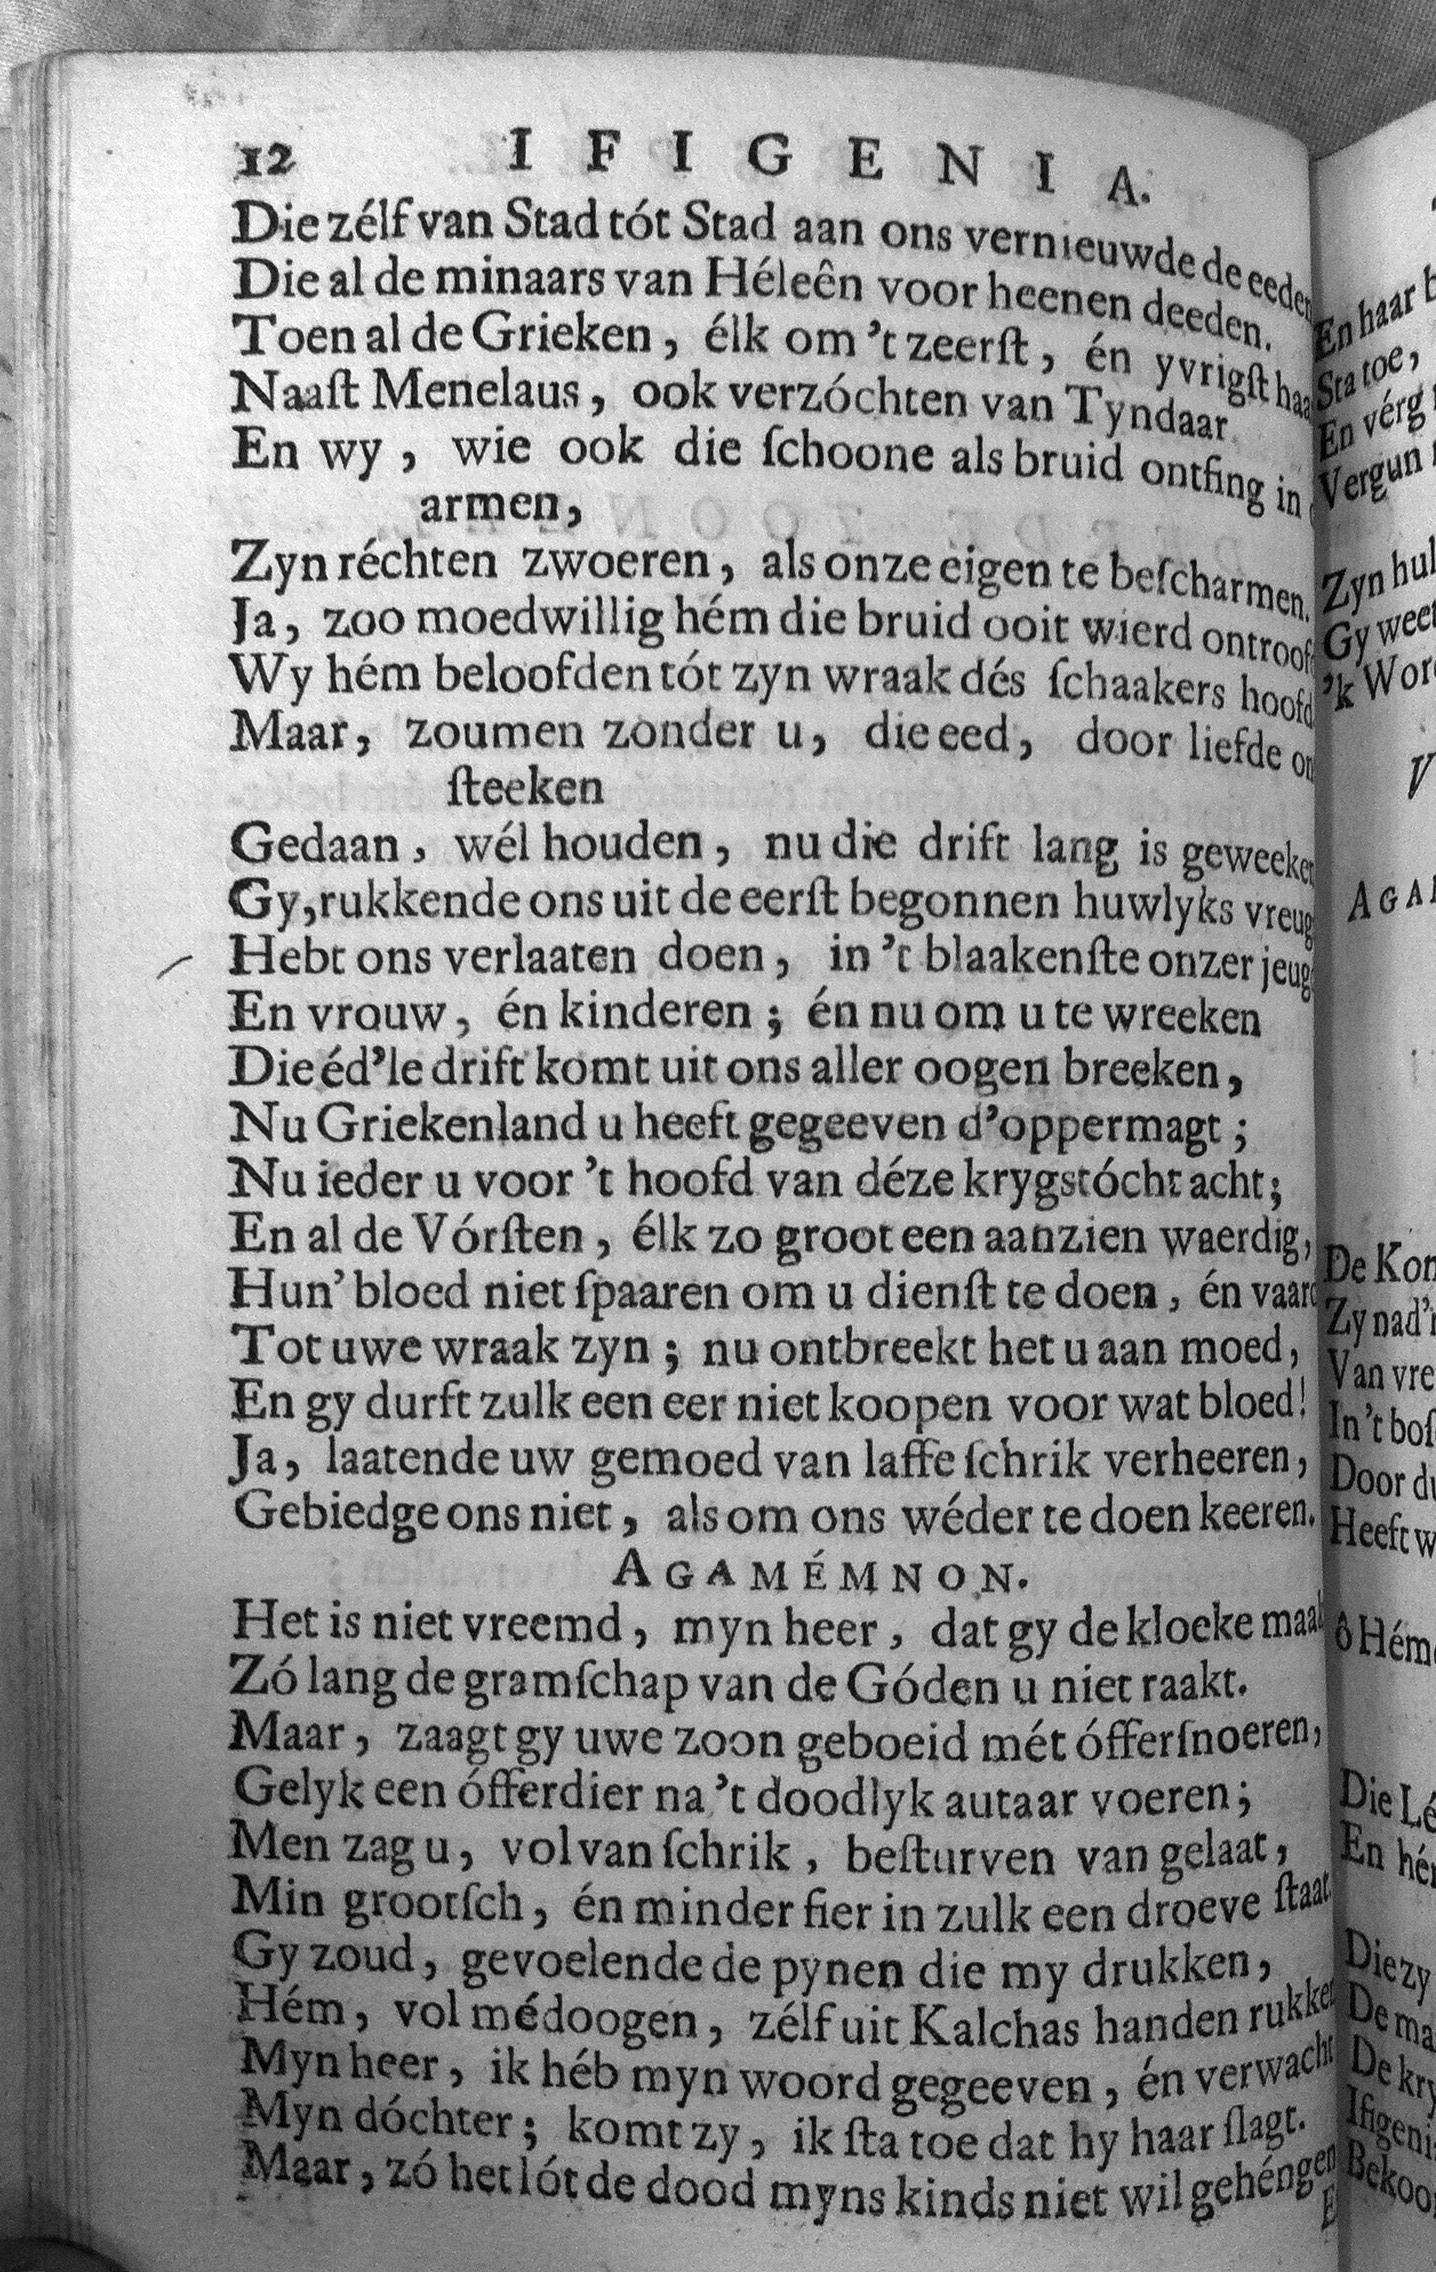 12 IFIGENIA.
Die zélf van Stad tót Stad aan ons vernieuwde de eeden
Die al de minaars van Héleên voor heenen deeden.
Toen al de Grieken, élk om 't zeerſt, én yvrigſt haa
Naaſt Menelaus, ook verzóchten van Tyndaar
En wy, wie ook die ſchoone als bruid ontfing in
armen,
Zyn réchten zwoeren, als onze eigen te beſcharmen.
Ja, zoo moedwillig hém die bruid ooit wierd ontroof
Wy hém beloofden tót zyn wraak dés ſchaakers hoofd
Maar, zoumen zonder u, die eed, door liefde on
ſteeken
Gedaan, wél houden, nu die drift lang is geweeken
Gy, rukkende ons uit de eerſt begonnen huwlyks vreug
Hebt ons verlaaten doen, in 't blaakenſte onzer jeug
En vrouw, én kinderen; én nu om u te wreeken
Die éd'le drift komt uit ons aller oogen breeken,
Nu Griekenland u heeft gegeeven d'oppermagt;
Nu ieder u voor 't hoofd van déze krygstócht acht;
En al de Vórſten, élk zo groot een aanzien waerdig,
Hun' bloed niet ſpaaren om u dienſt te doen, én vaard
Tot uwe wraak zyn; nu ontbreekt het u aan moed,
En gy durft zulk een eer niet koopen voor wat bloed!
Ja, laatende uw gemoed van laffe ſchrik verheeren,
Gebiedge ons niet, als om ons wéder te doen keeren.
AGAMÉMNON.
Het is niet vreemd, myn heer, dat gy de kloeke maak
Zó lang de gramſchap van de Góden u niet raakt.
Maar, zaagt gy uwe zoon geboeid mét ófferſnoeren,
Gelyk een ófferdier na 't doodlyk autaar voeren;
Men zag u, vol van ſchrik, beſturven van gelaat,
Min grootſch, én minder fier in zulk een droeve ſtaat.
Gy zoud, gevoelende de pynen die my drukken,
Hém, vol médoogen, zélf uit Kalchas handen rukken
Myn heer, ik héb myn woord gegeeven, én verwacht
Myn dóchter; komt zy, ik ſta toe dat hy haar ſlagt.
Maar, zó het lót de dood myns kinds niet wil gehéngen
En haar
Sta toe,
En vérg
Vergun
Zyn hul
Gy weet
'k Wor
V
AGA
De Kon
Zy nad'
Van vre
In 't boſ
Door du
Heeft w
ô Hém
Die Lé
En hé
Die zy
De ma
De kry
Ifigeni
Bekoo